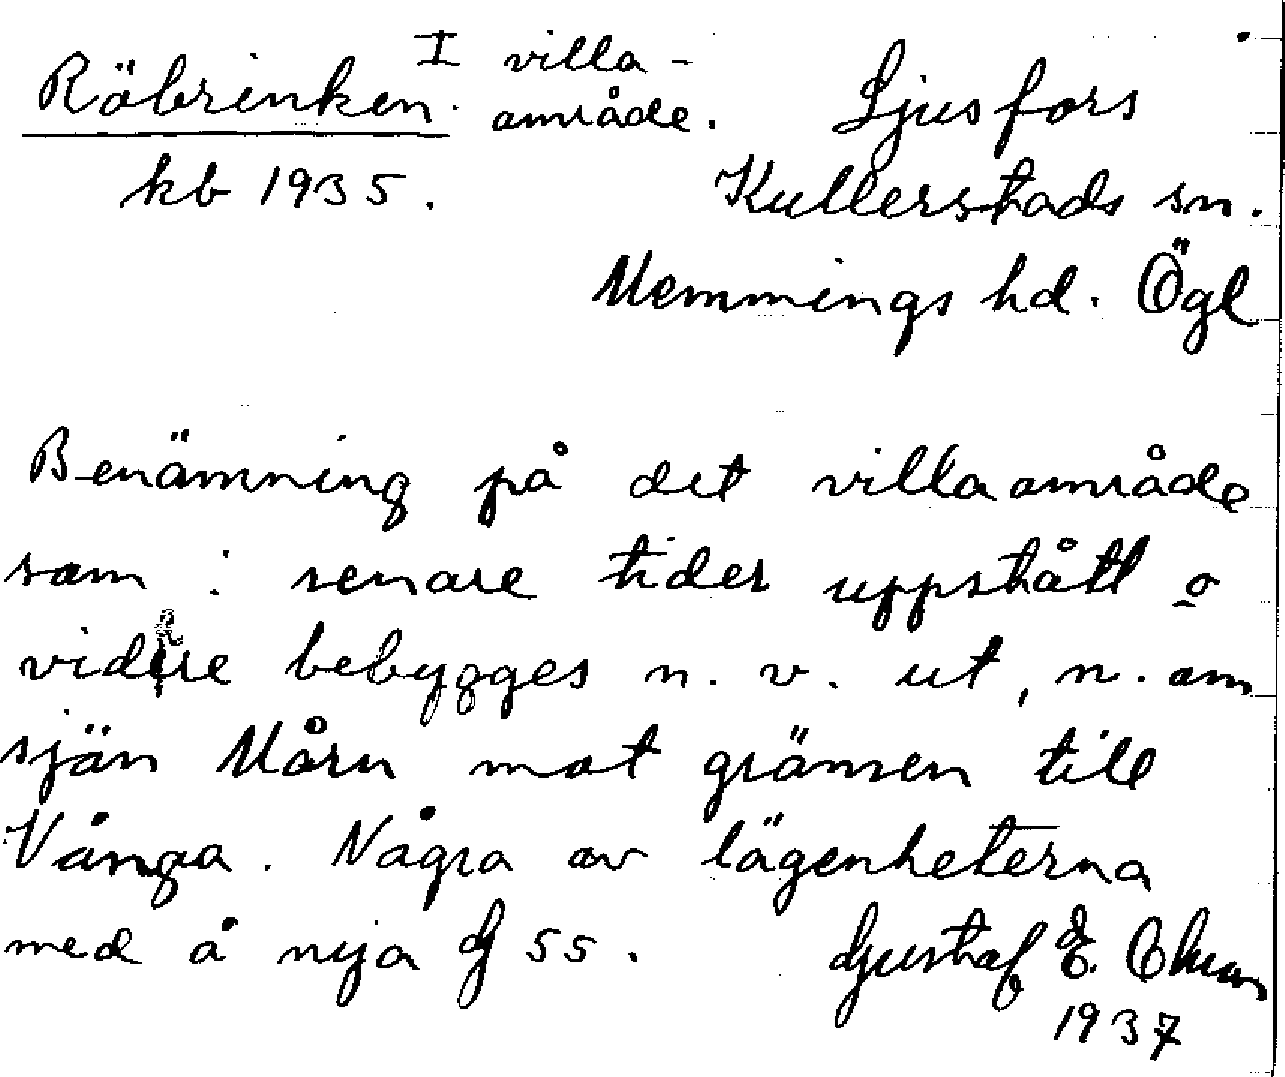 Röbrinken. I villa-
område. Ljusfors
kb 1935. Kullerstads sn.
Memmings hd. Ögl
Benämning på det villaområde
som i senare tider uppstått o
vidare bebygges n. v. ut, n. om
sjön Mårn mot gränsen till
Vånga. Några av lägenheterna
med å nya G 55. Gustaf E.
1937